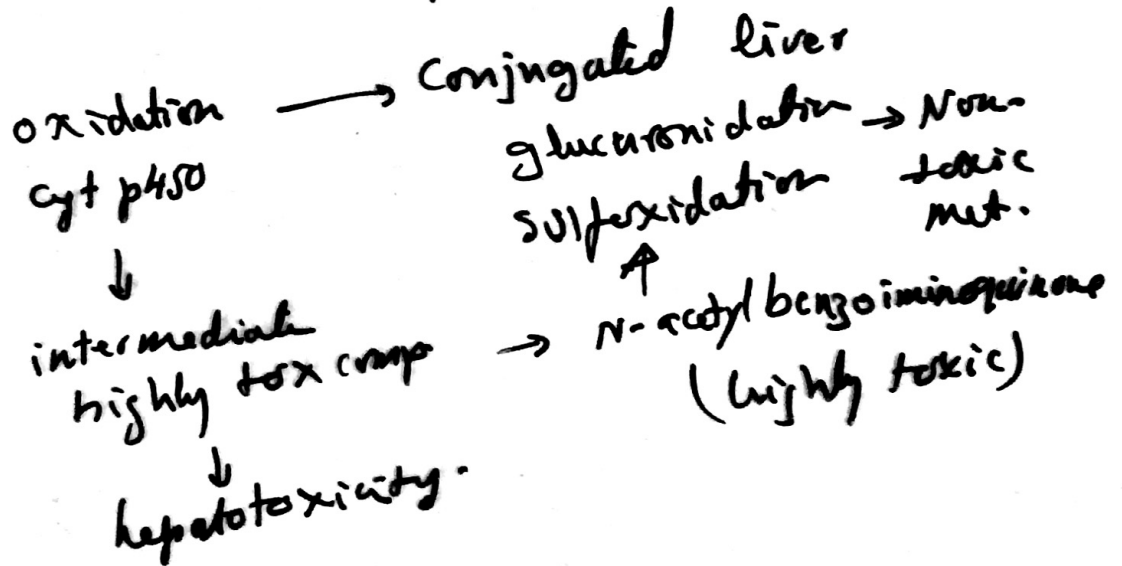 oxidation → Conjugated liver
cyt p450
glucuronidation → Non-
toxic
met.
sulfoxidation
↑
↓
intermediate
highly tox comp → N-acetylbenzoiminoquinone
(highly toxic)
↓
hepatotoxicity.